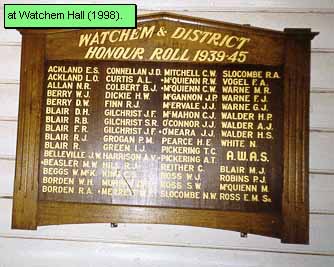 at Watchem Hall (1998).
WATCHEM & DISTRICT
HONOUR ROLL 1939-45
ACKLAND E.S.
ACKLAND L.O.
ALLAN N.R.
BERRY W.J.
BERRY D.W.
BLAIR D.H.
BLAIR R.B.
BLAIR F.R.
BLAIR R.J.
BLAIR R.
BELLEVILLE J.W.
BEASLER M.W.
BEGGS W.McK.
BORDEN W.H.
BORDEN R.A.
CONNELLAN J.D.
CURTIS A.L.
COLBERT B.J.
DICKIE H.W.
FINN R.J.
GILCHRIST J.F.
GILCHRIST S.R.
GILCHRIST J.F.
GROGAN P.M.
GREEN I.J.
HARRISON A.V.
HILL R.J.
KING C.S.
MERRETT
MITCHELL C.W.
McQUINN R.W.
McQUINN C.W.
McGANNON J.P.
McERVALE J.J.
McMAHON C.J.
O'CONNOR J.J.
OMEARA J.J.
PEARCE H.E.
PICKERING T.C.
PICKERING A.T.
REITHER C.
ROSS W.J.
ROSS S.W.
SLOCOMBE N.W.
SLOCOMBE R.A.
VOGEL F.A.
WARNE M.R.
WARNE F.J.
WARNE G.J.
WALDER H.P.
WALDER A.J.
WALDER H.S.
WHITE N.
A.W.A.S.
BLAIR M.J.
ROBINS P.J.
McQUINN M.
ROSS E.M.S.